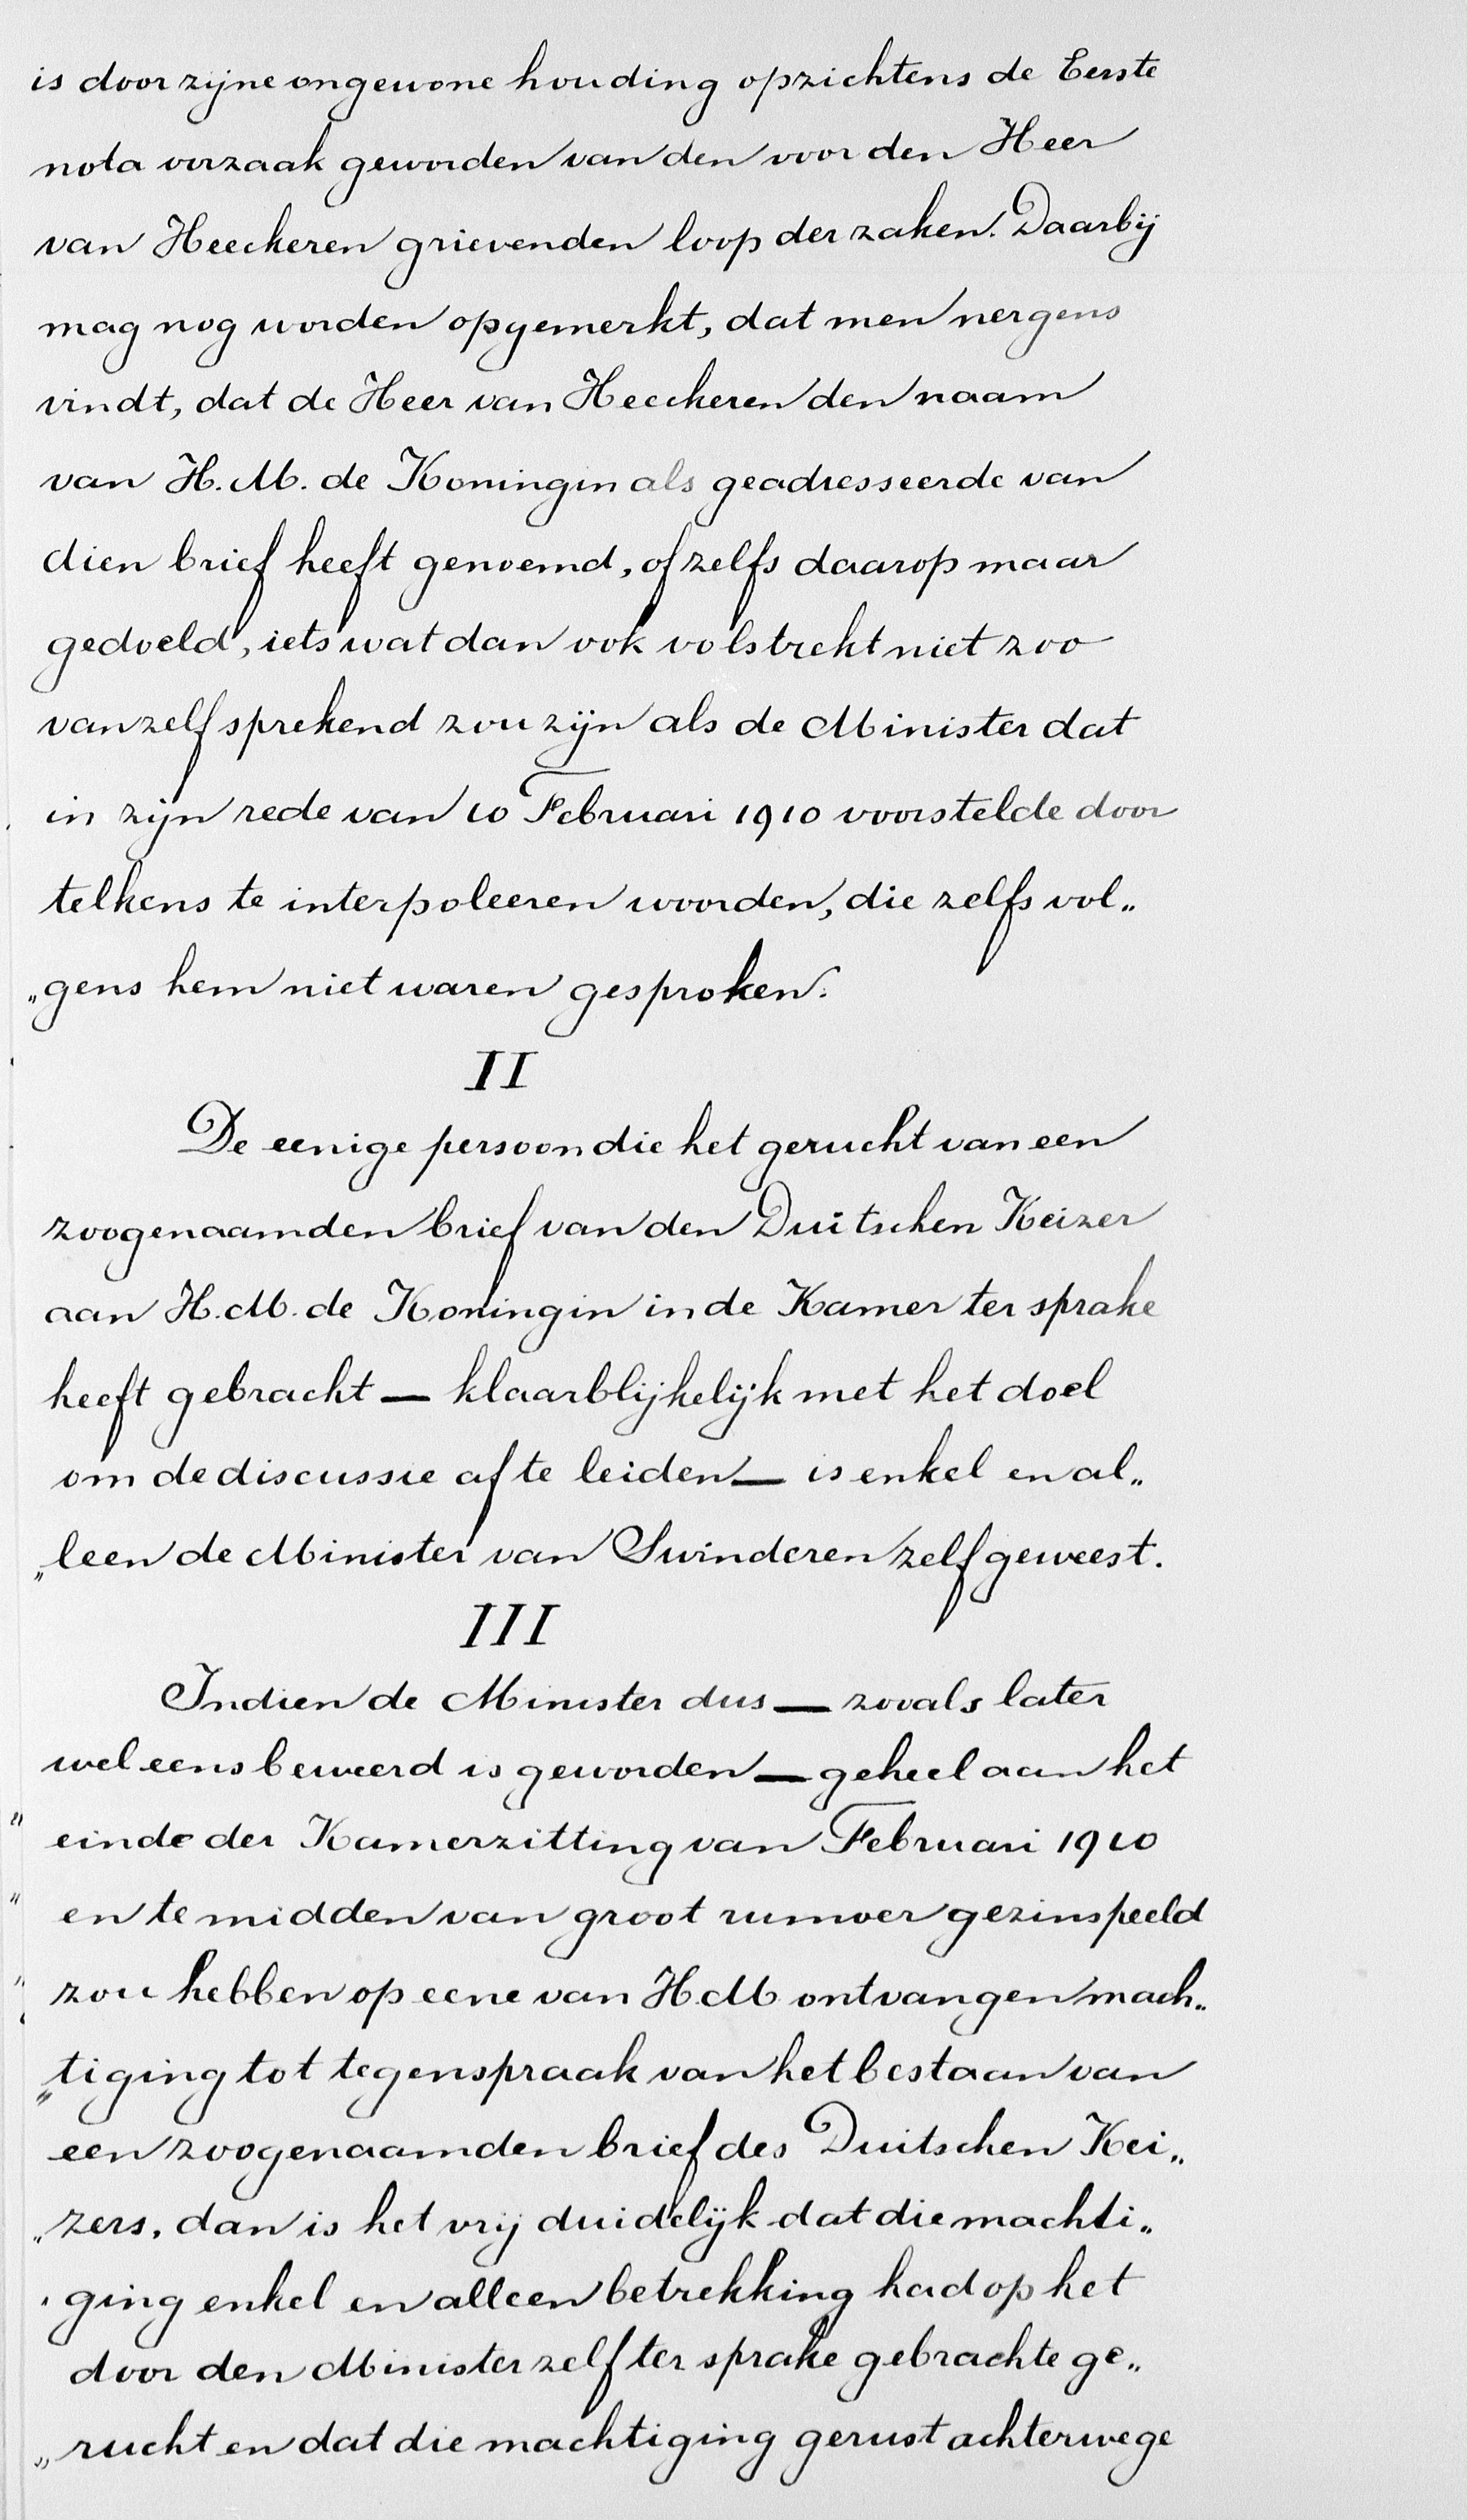 is door zijne ongewone houding opzichtens de Eerste
nota oorzaak geworden van den voor den Heer
van Heeckeren grievenden loop der zaken. Daarbij
mag nog worden opgemerkt, dat men nergens
vindt, dat de Heer van Heeckeren den naam
van H.M. de Koningin als geadresseerde van
dien brief heeft genoemd, of zelfs daarop maar
gedoeld, iets wat dan ook volstrekt niet zoo
vanzelf sprekend zou zijn als de Minister dat
in zijn rede van 10 Februari 1910 voorstelde door
telkens te interpoleeren woorden, die zelfs vol„
„gens hem niet waren gesproken.
II
De eenige persoon die het gerucht van een
zoogenaamden brief van den Duitschen Keizer
aan H.M. de Koningin in de Kamer ter sprake
heeft gebracht — klaarblijkelijk met het doel
om de discussie af te leiden — is enkel en al„
„leen de Minister van Swinderen zelf geweest.
III
Indien de Minister dus — zooals later
wel eens beweerd is geworden — geheel aan het
einde der Kamerzitting van Februari 1910
en te midden van groot rumoer gezinspeeld
zou hebben op eene van H.M. ontvangen mach„
„tiging tot tegenspraak van het bestaan van
een zoogenaamden brief des Duitschen Kei„
„zers, dan is het vrij duidelijk dat die machti„
ging enkel en alleen betrekking had op het
door den Minister zelf ter sprake gebrachte ge„
„rucht en dat die machtiging gerust achterwege